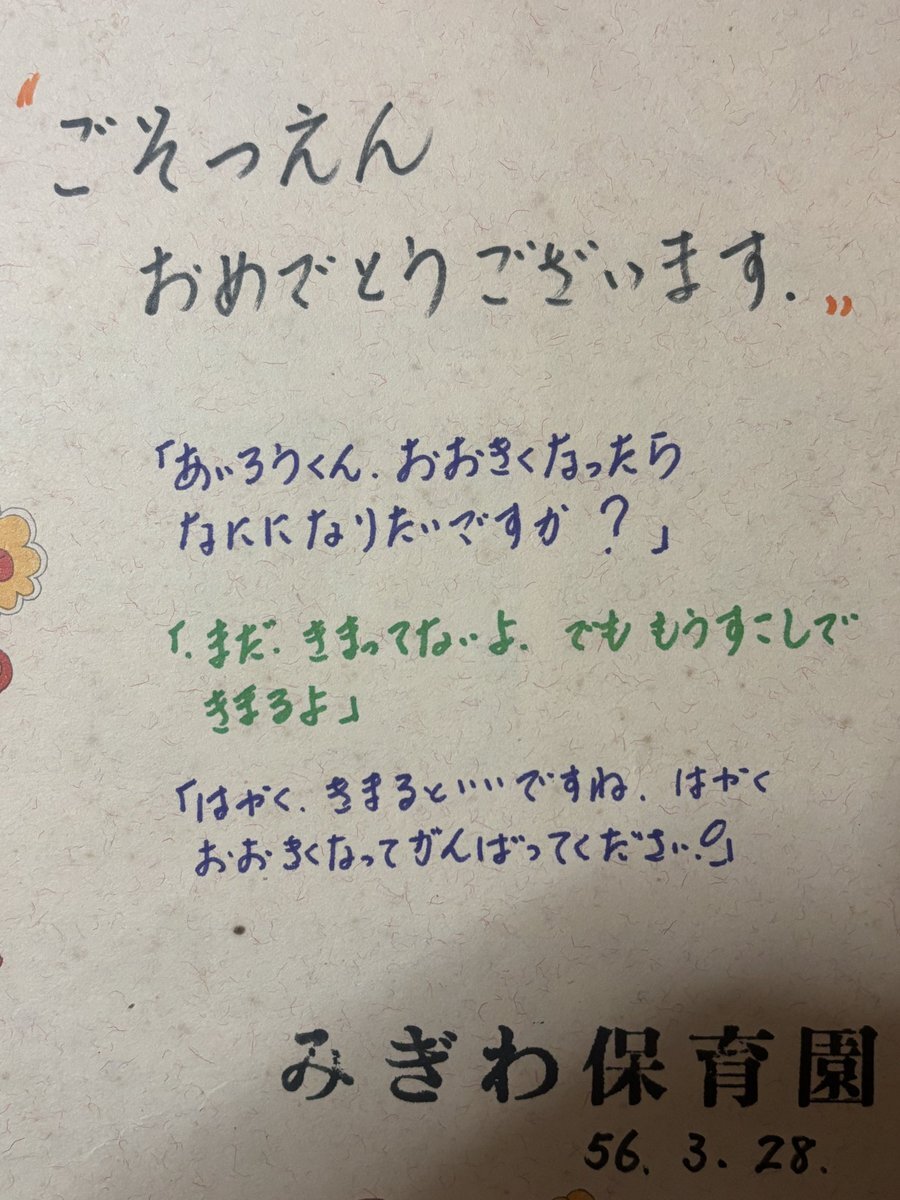 "ごそつえん
おめでとうございます."
「あいろうくん. おおきくなったら
なにになりたいですか?」
「. まだ. きまってないよ. でも もうすこしで
きまるよ」
「はやく. きまるといいですね. はやく
おおきくなってがんばってください。」
みぎわ保育園
56. 3. 28.